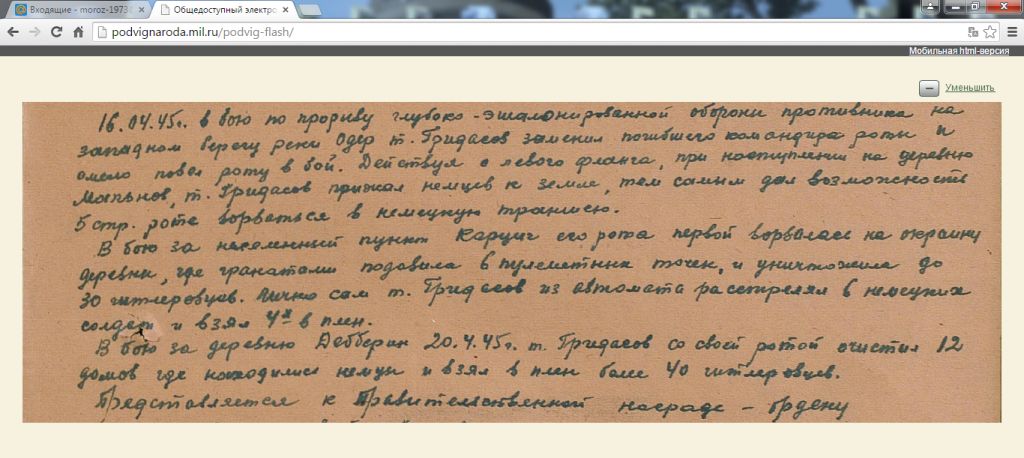 Входящие - moroz-1973
Общедоступный электро
podvignaroda.mil.ru/podvig-flash/
Мобильная html-версия
Уменьшить
16.04.45г. в бою по прорыву глубоко-эшалонированной оборони противника на
западном берегу реки Одер т. Гридасов заменил погибшего командира роты и
смело повел роту в бой. Действуя с левого фланга, при наступлении на деревню
т. Гридасов прижал немцев к земле, тем самым дал возможность
5 стр. роте ворваться в немецкую траншею.
В бою за населенный пункт его рота первой ворвалась на окраину
деревни, где гранатами подавила 6 пулеметных точек, и уничтожила до
30 гитлеровцев. Лично сам т. Гридасов из автомата расстрелял 8 немецких
солдат и взял 4х в плен.
В бою за деревню Дебберин 20.4.45г. т. Гридасов со своей ротой очистил 12
домов где находились немцы и взял в плен более 40 гитлеровцев.
Представляется к Правительственной награде - Ордену